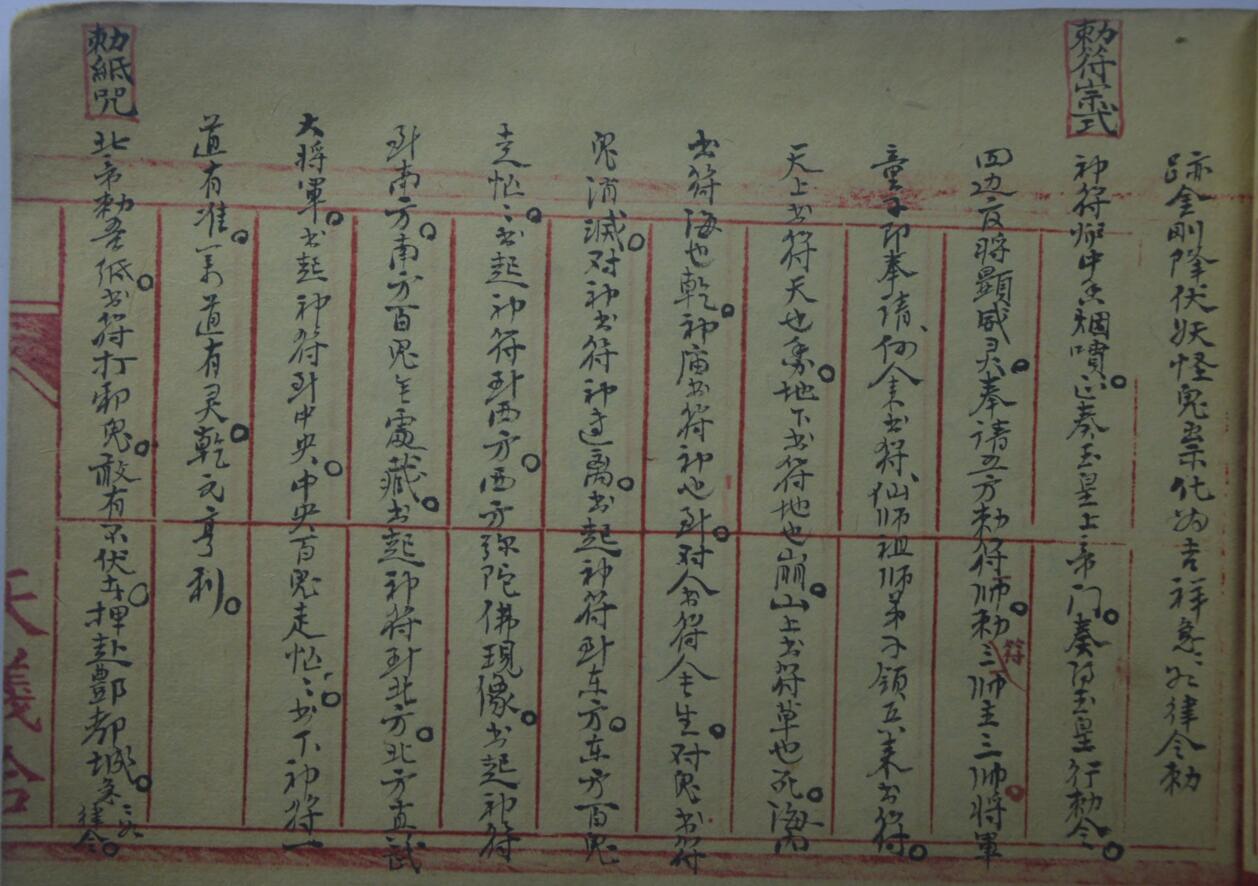 跡金剛降伏妖怪鬼祟化为吉祥急〻如律令勅
勅符宗式
神符炉中香烟噴。正奏玉皇上帝門。奏得玉皇行勅令。
四边官将顕威灵。奉请五方勅符师。勅符三师主三师将軍
童子郎奉请、仔余来书符、仙师祖师弟子领兵来书符。
天上书符天也开。地下书符地也崩。山上书符草也死。海内
书符海也乾。神庙书符神也到。对人书符人生。对鬼书符
鬼消滅。对神书符神速离。书起神符到东方。东方百鬼
走忙〻。书起神符到西方。西方弥陀佛現像。书起神符
到南方。南方百鬼无處藏。书起神符到北方。北方真武
大將軍。书起神符到中央。中央百鬼走忙〻。书下神符一
道有准。万道有灵。乾元亨利。
勅紙咒
北帝勅吾紙。书符打邪鬼。敢有不伏者。押赴酆都城。急〻如律令。
天義合